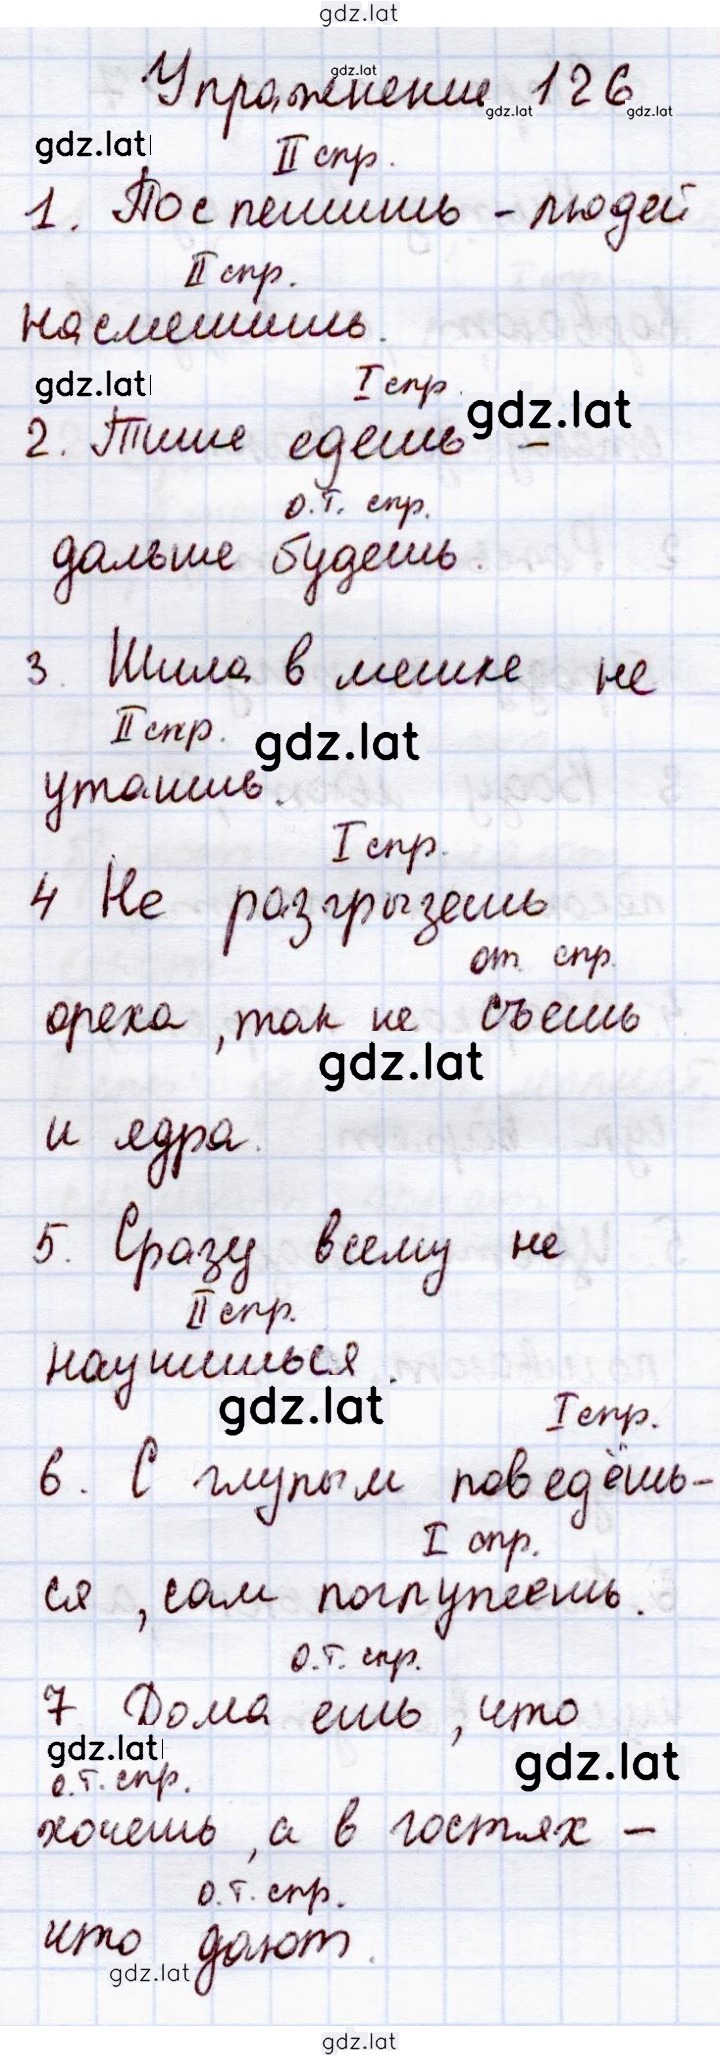 gdz.lat
gdz.lat
Упражнение 126
gdz.lat gdz.lat
gdz.lat
II спр.
1. Поспешишь - людей
II спр.
насмешишь.
gdz.lat
I спр.
gdz.lat
2. Тише едешь -
о.т. спр.
дальше будешь.
3. Шила в мешке не
II спр.
gdz.lat
утаишь.
I спр.
4 Не разгрызешь
от. спр.
ореха, так не съешь
gdz.lat
и ядра.
5. Сразу всему не
II спр.
научишься.
gdz.lat
I спр.
6. С глупым поведёшь-
I спр.
ся, сам поглупеешь.
о.т. спр.
7 Дома ешь, что
gdz.lat
gdz.lat
о.т. спр.
хочешь, а в гостях -
о.т. спр.
что дают.
gdz.lat
gdz.lat